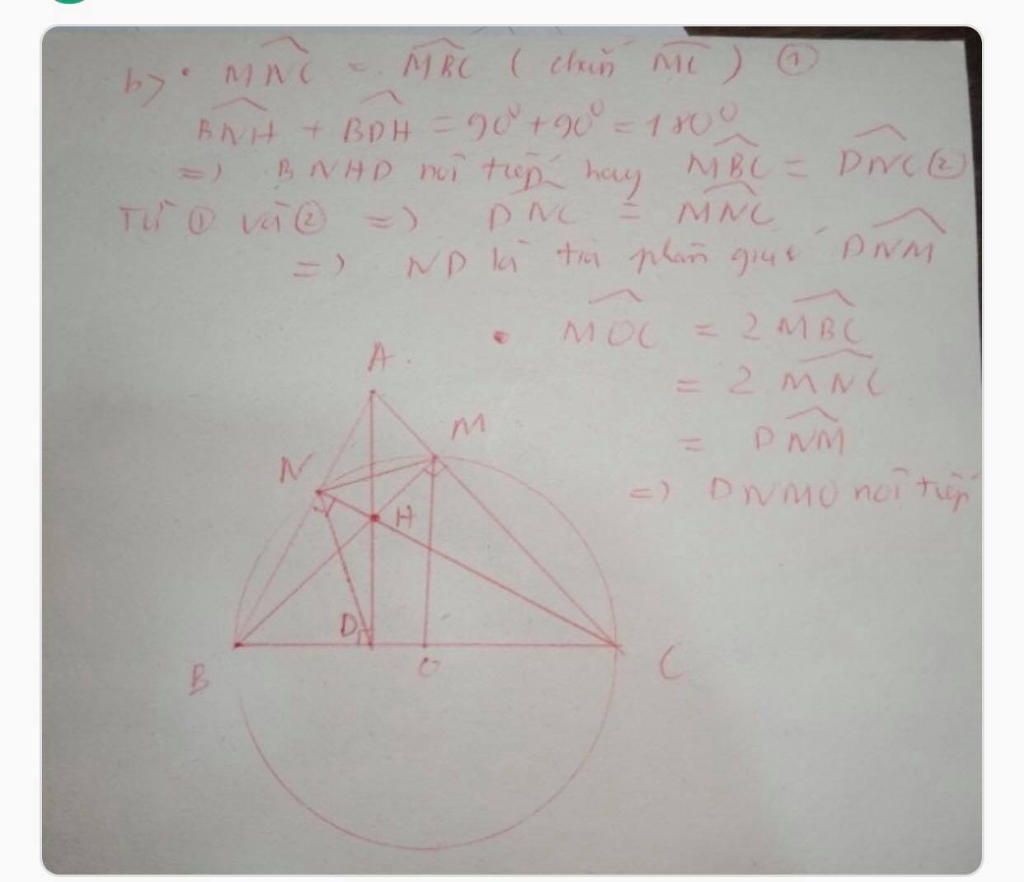 b) • MNC = MBC ( chắn MC ) ①
BNH + BDH = 90⁰ + 90⁰ = 180⁰
=> BNHD nội tiếp hay MBC = DNC ②
Từ ① và ② => DNC = MNC
=> ND là tia phân giác DNM
• MOC = 2 MBC
= 2 MNC
= DNM
=> DNMO nội tiếp
A
M
N
H
D
B
O
C